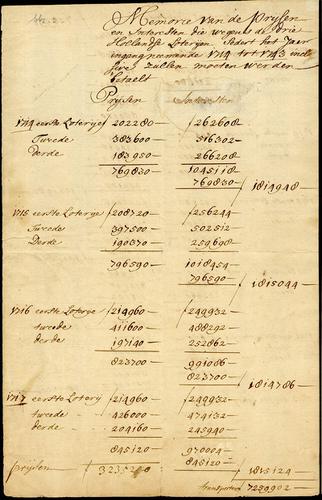 Memorie van de Prijsen
en Intereste die wegens de Drie
Hollandse Loterijen Sedert het Jaer
1714 tot 1743 incl
zullen moeten werden
betaelt
Prijsen Interesten
1714 eerste Loterije f 202280 — f 262608
Tweede 383600 — 516302 —
Derde 183950 — 266208 —
769830 — 1045118
769830 — f 1814948
1715 eerste Loterije f 208720 — f 256244 —
Tweede 397500 — 502512
Derde 190370 — 259698 —
796590 — 1018454
796590 — f 1815044
1716 eerste Loterye f 214960 — f 249932
tweede 411600 — 488292
derde 197140 — 252862
823700 — 991086
823700 — f 1814786 —
1717 eerste Loterij f 214960 — f 249932
tweede 426000 — 474132
derde 204160 — 245940
845120 — 970004
845120 — f 1815124
prijsen f 3235240 transportere 7259902